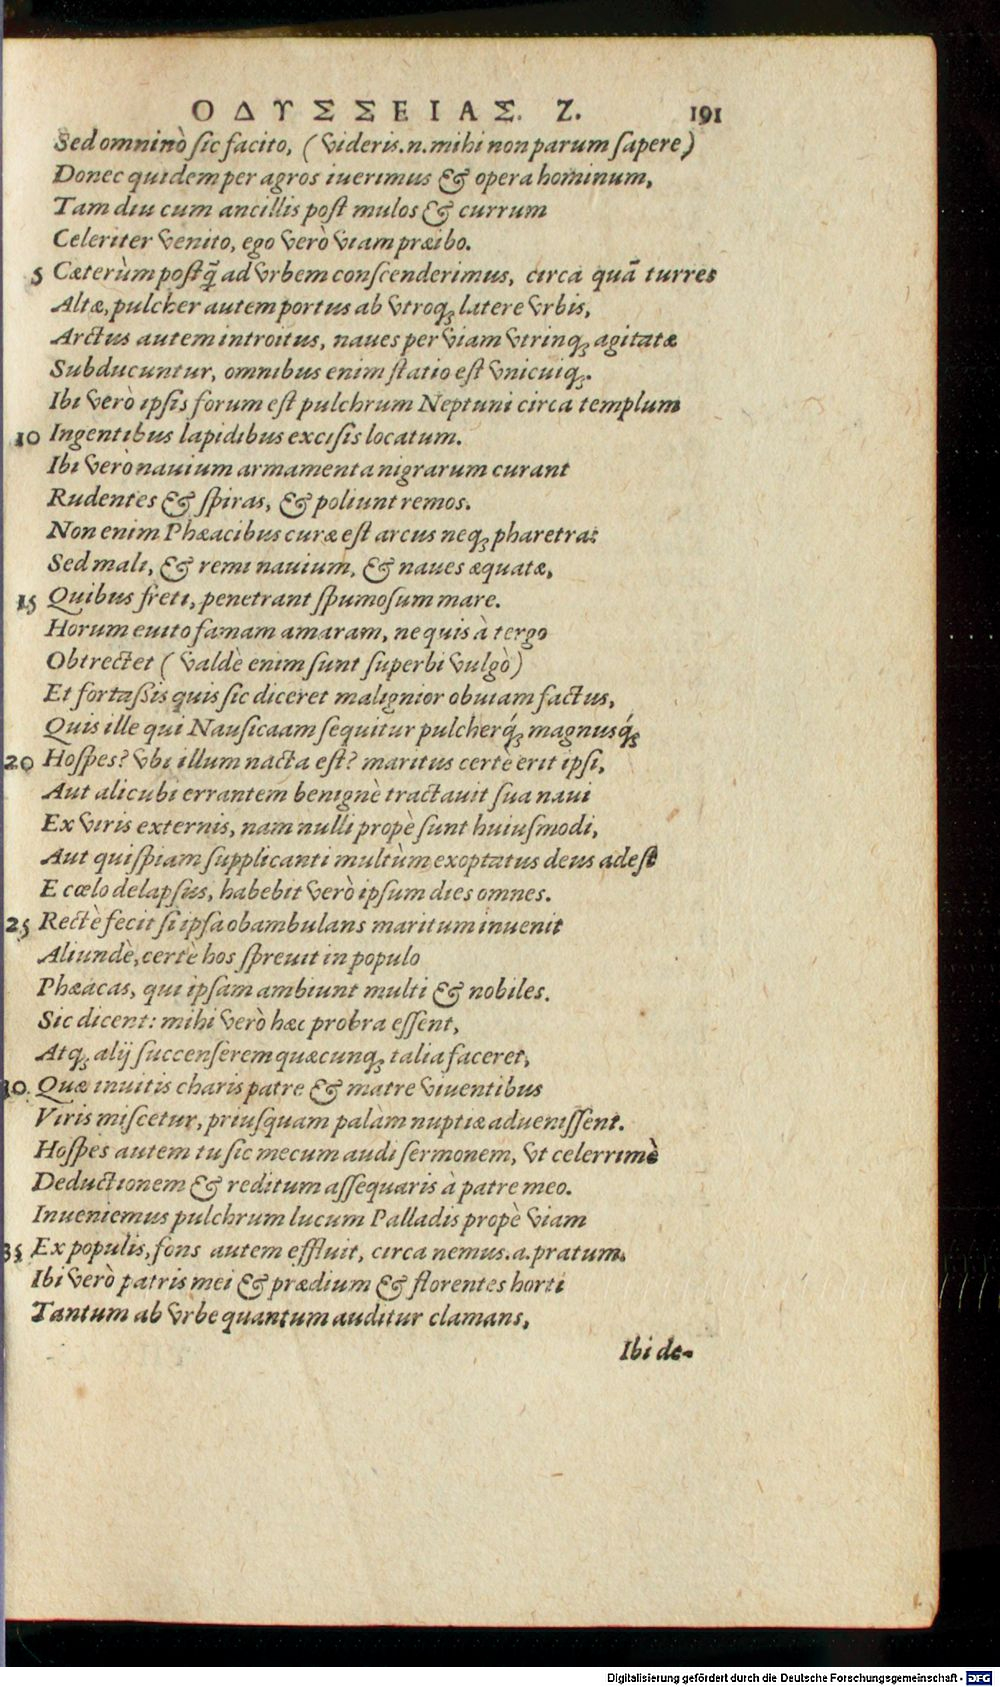 ΟΔΥΣΣΕΙΑΣ. Ζ. 191
Sed omninò sic facito, (videris.n.mihi non parum sapere)
Donec quidem per agros iuerimus & opera hominum,
Tam diu cum ancillis post mulos & currum
Celeriter venito, ego verò viam præibo.
5 Cæterùm postq̃ ad vrbem conscenderimus, circa quã turres
Altæ, pulcher autem portus ab vtroq; latere vrbis,
Arctus autem introitus, naues per viam vtrinq; agitatæ
Subducuntur, omnibus enim statio est vnicuiq;.
Ibi verò ipsis forum est pulchrum Neptuni circa templum
10 Ingentibus lapidibus excisis locatum.
Ibi verò nauium armamenta nigrarum curant
Rudentes & spiras, & poliunt remos.
Non enim Phæacibus curæ est arcus neq; pharetra:
Sed mali, & remi nauium, & naues æquatæ,
15 Quibus freti, penetrant spumosum mare.
Horum euito famam amaram, ne quis à tergo
Obtrectet (valdè enim sunt superbi vulgò)
Et fortassis quis sic diceret malignior obuiam factus,
Quis ille qui Nausicaam sequitur pulcherq́; magnusq́;
20 Hospes? vbi illum nacta est? maritus certè erit ipsi,
Aut alicubi errantem benignè tractauit sua naui
Ex viris externis, nam nulli propè sunt huiusmodi,
Aut quispiam supplicanti multùm exoptatus deus adest
E cœlo delapsus, habebit verò ipsum dies omnes.
25 Rectè fecit si ipsa obambulans maritum inuenit
Aliundè, certè hos spreuit in populo
Phæacas, qui ipsam ambiunt multi & nobiles.
Sic dicent: mihi verò hæc probra essent,
Atq; alij succenserem quæcunq; talia faceret,
30. Quæ inuitis charis patre & matre viuentibus
Viris miscetur, priusquam palàm nuptiæ aduenissent.
Hospes autem tu sic mecum audi sermonem, vt celerrimè
Deductionem & reditum assequaris à patre meo.
Inueniemus pulchrum lucum Palladis propè viam
35 Ex populis, fons autem effluit, circa nemus.a.pratum.
Ibi verò patris mei & prædium & florentes horti
Tantum ab vrbe quantum auditur clamans,
Ibi de-
Digitalisierung gefördert durch die Deutsche Forschungsgemeinschaft - DFG